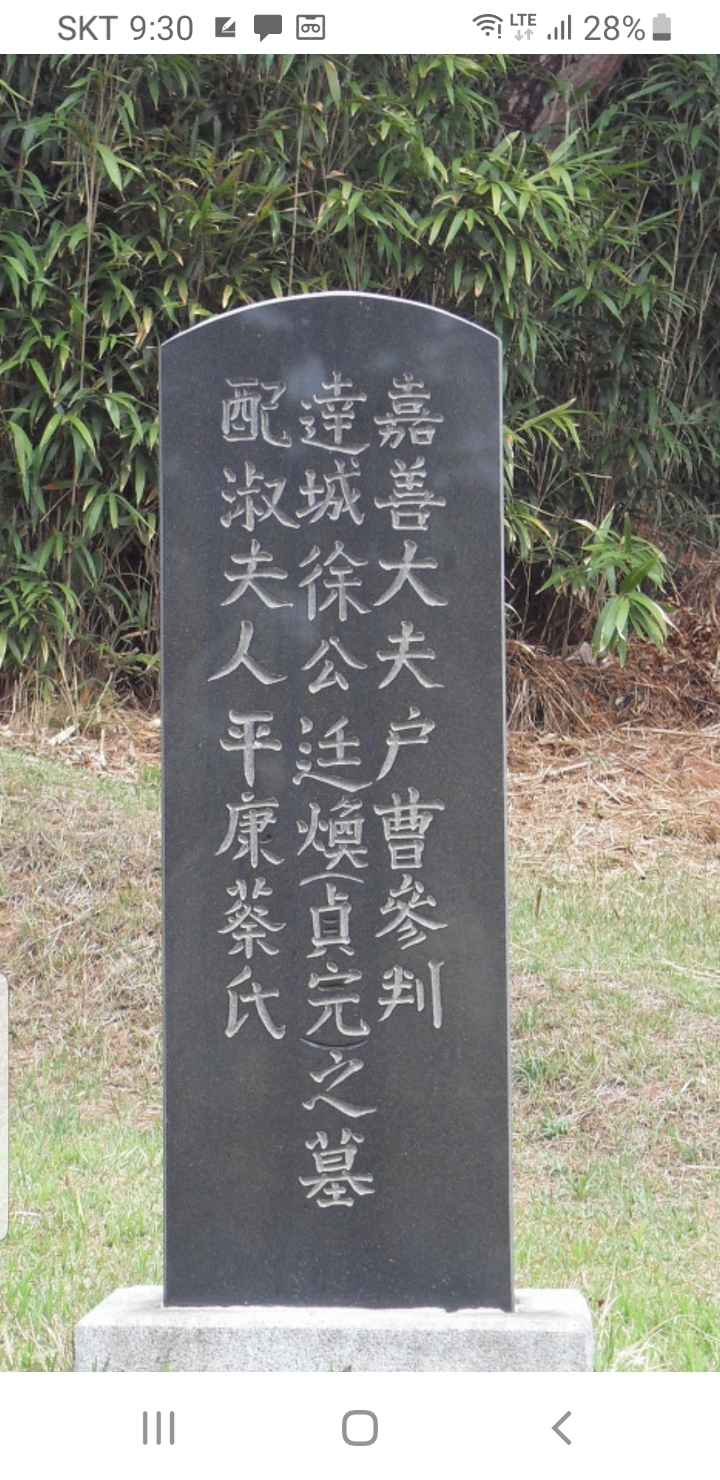 SKT 9:30 LTE 28%
嘉善大夫户曹參判
達城徐公廷煥(貞完)之墓
配淑夫人平康蔡氏